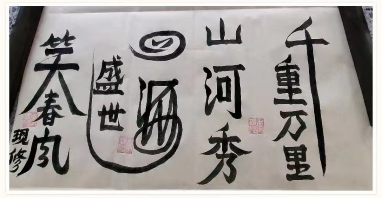 千重万里
山河秀
四海
盛世
笑春风
现修